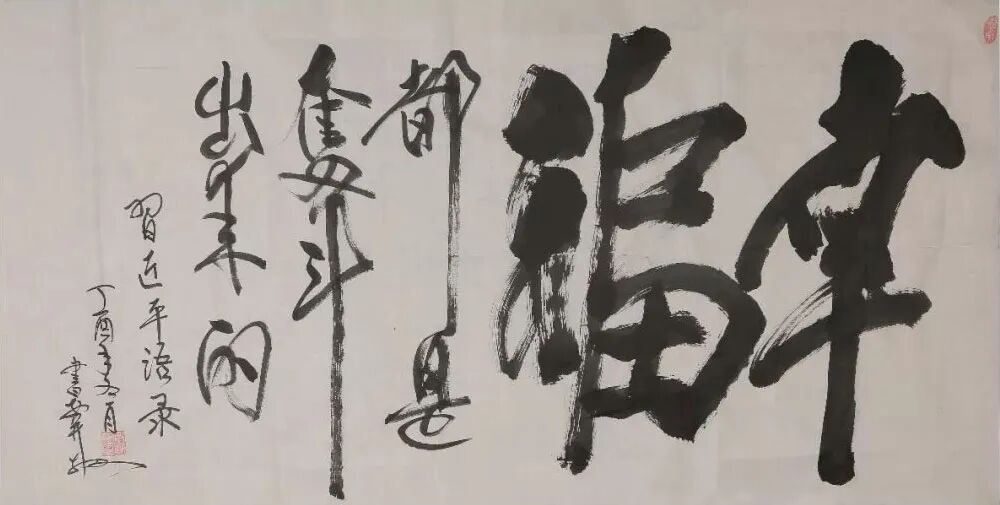 幸福
都是
奮斗
出来的
習近平语录
丁酉年夏月
書